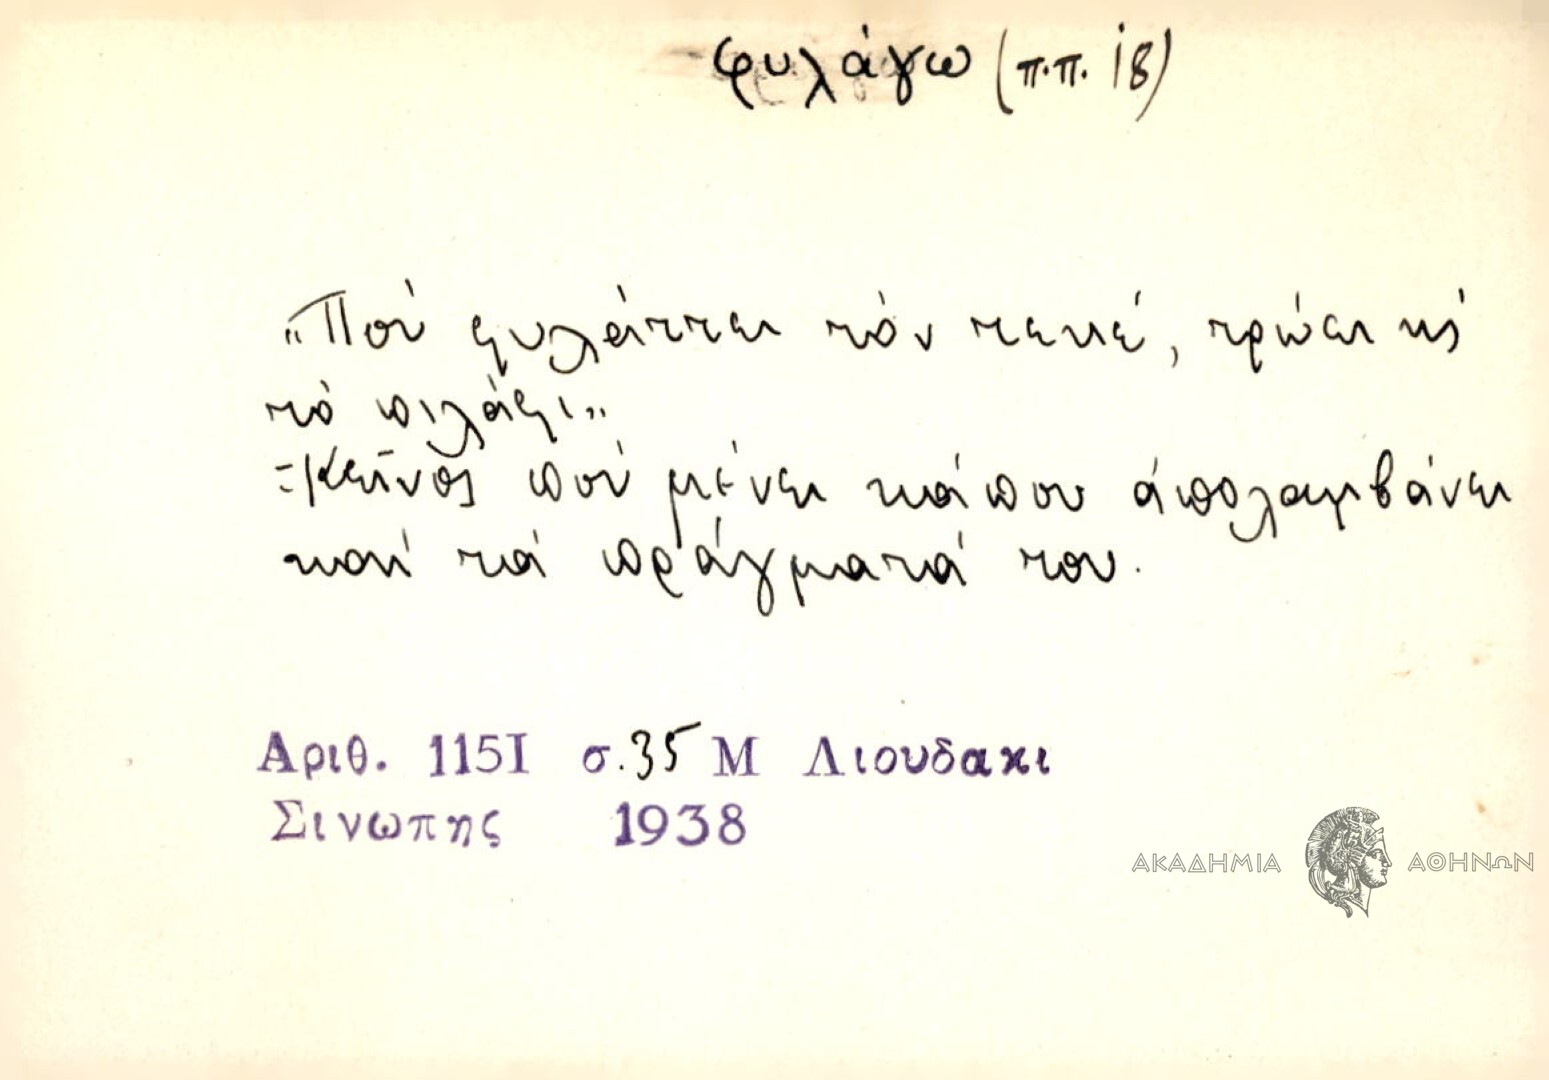 φυλάγω (π.π. 18)
„Πού φυλάττει τόν τεκέ, τρώει κι
τό πιλάφι"
- Κεῖνος πού μένει κάπου ἀπολαμβάνει
καί τά πράγματά του.
Αριθ. 1151 σ. 35 Μ Λιουδακι
Σινωπης 1938
ΑΚΑΔΗΜΙΑ ΑΘΗΝΩΝ